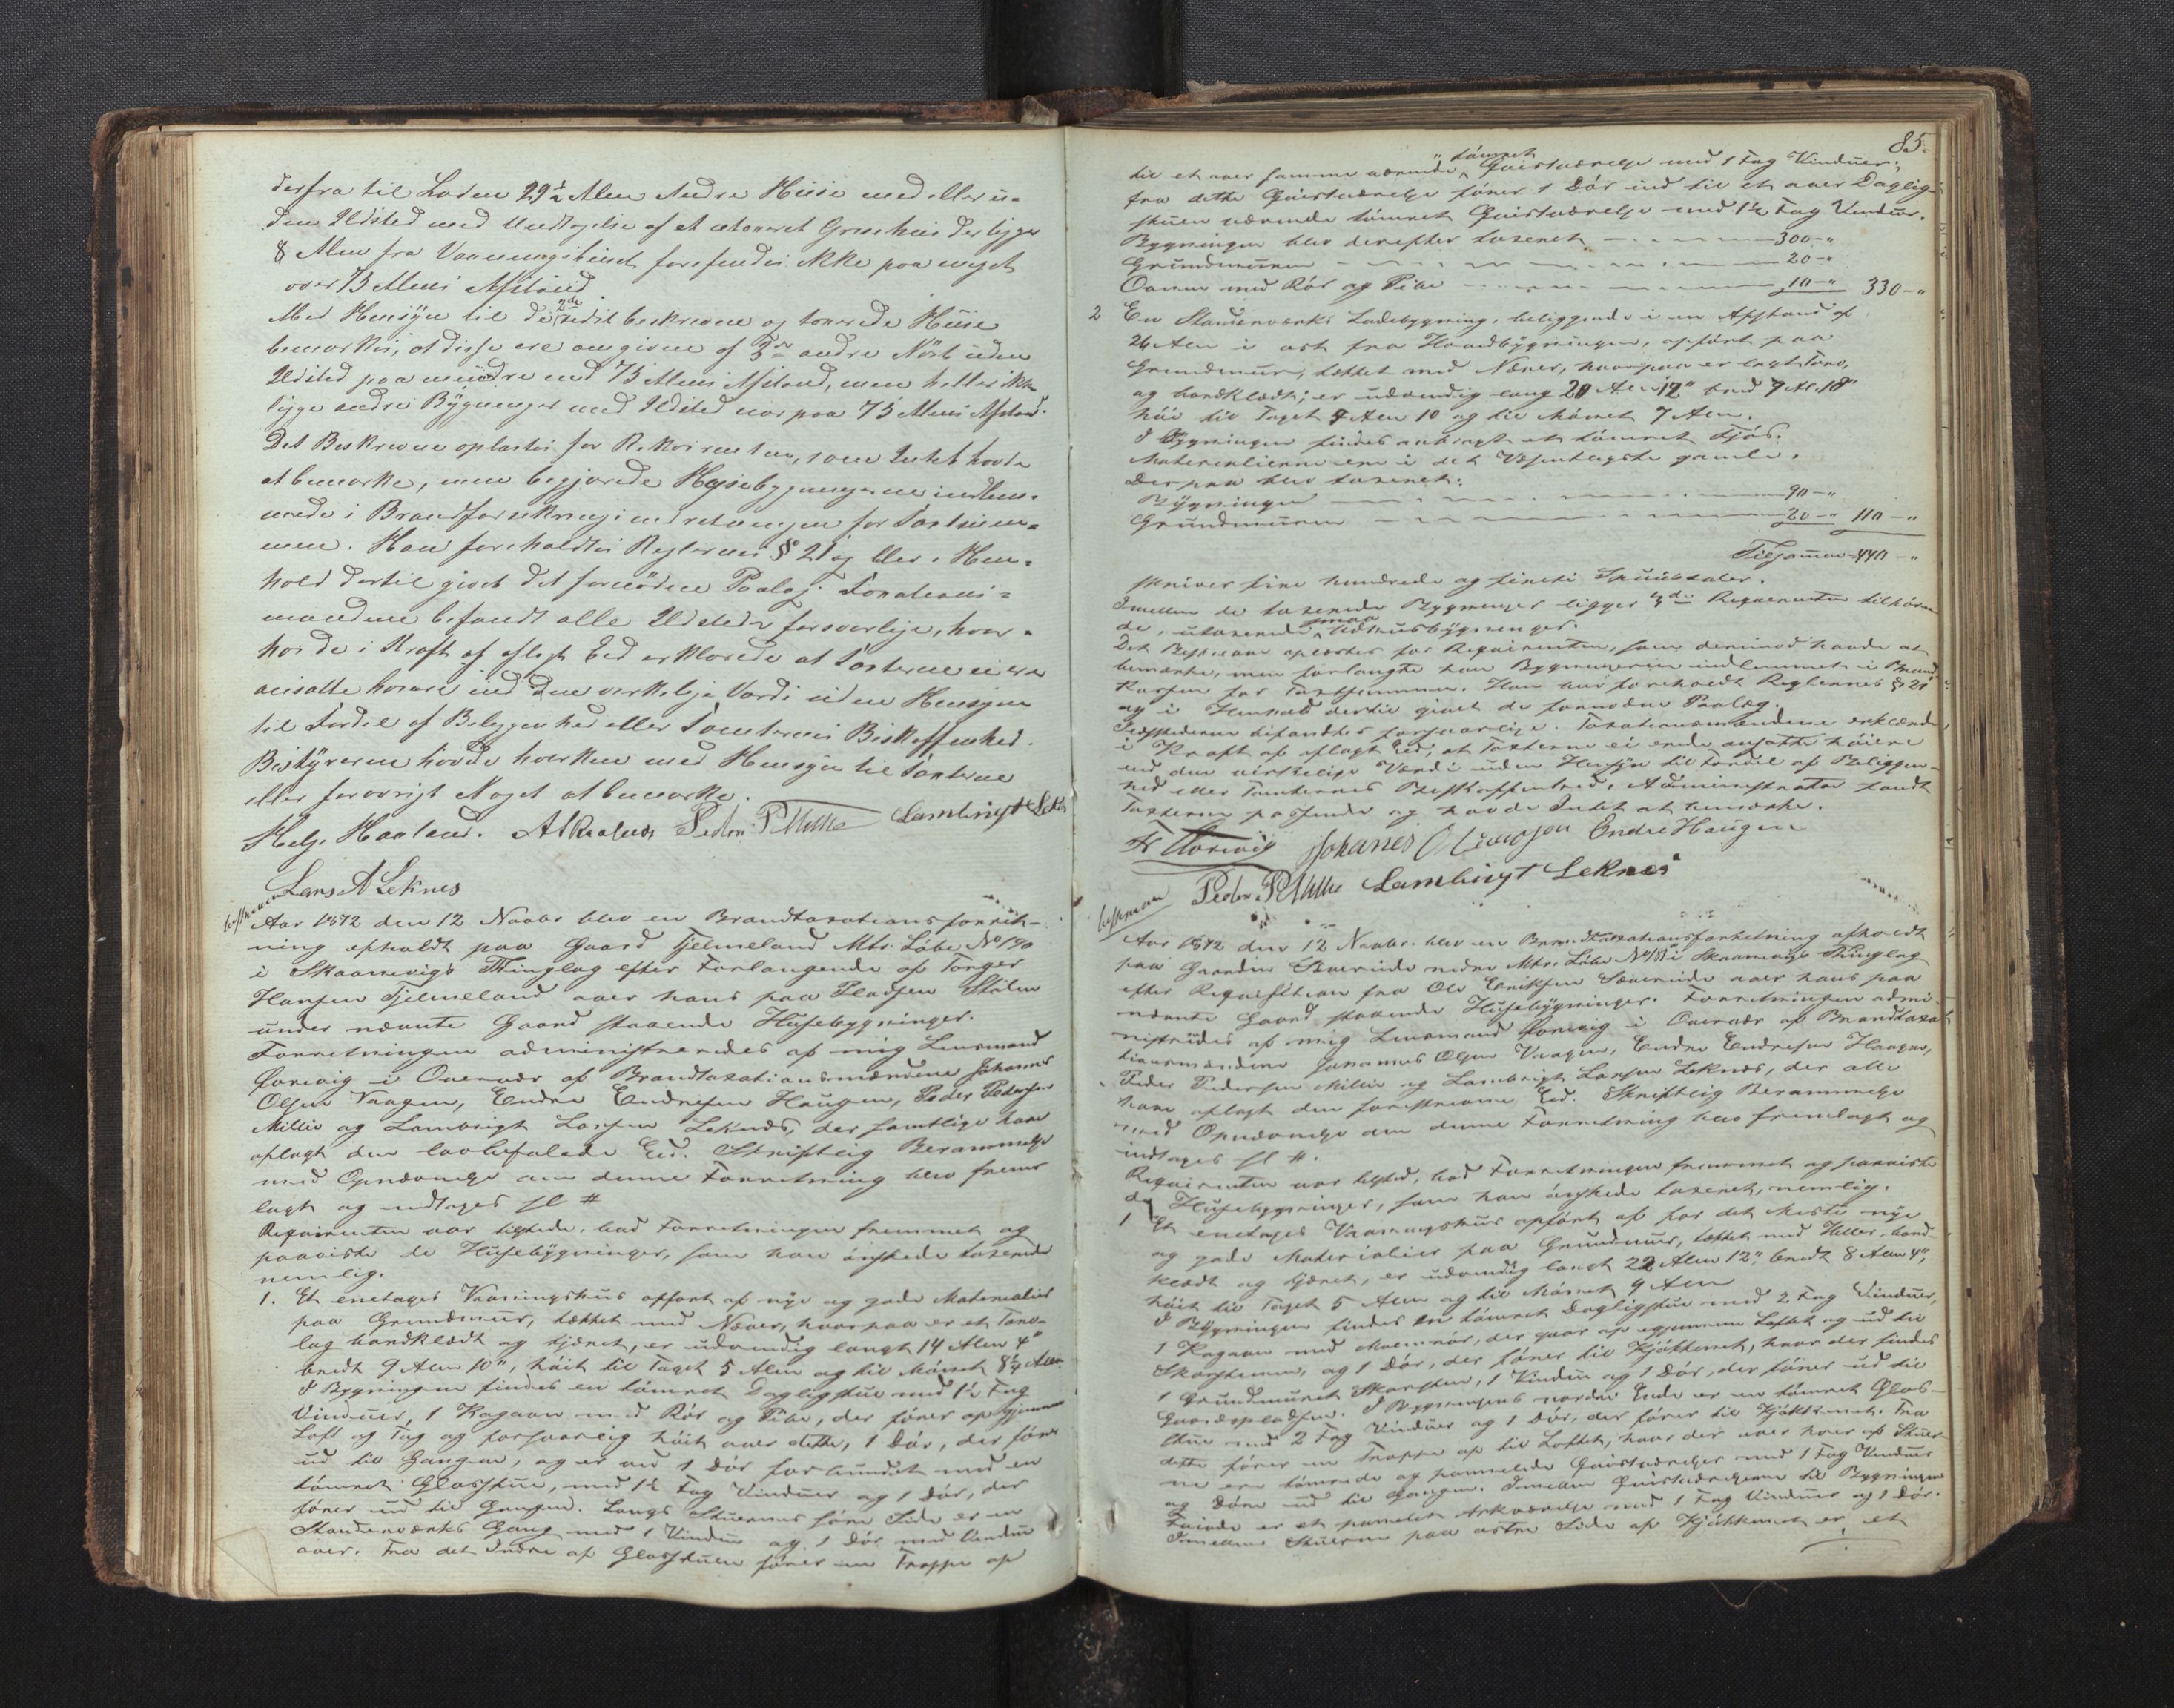 derfra til Laden 29½ Alen Andre Huse med eller u-
den Ildsted med Undtagelse af et utaxeret Grisehus der ligger
8 Alen fra Vaaningshuset forefindes ikke paa meget
over 75 Alens Afstand
Med Hensyn til de 2de sidst beskrevne og taxerede Huse
bemærkes, at disse ere omgivne af 3de andre Nøst uden
Ildsted paa mindre end 75 Alens Afstand, men heller ikke
ligge andre Bygninger med Ildsted nær paa 75 Alens Afstand.
Det Beskrevne oplæstes for Rekvirenten, som Intet havde
at bemærke, men begjærede Husebygningerne indlem-
mede i Brandforsikringsindretningen for Taxtsum-
men. Han foreholdtes Reglernes § 21 og blev i Hen-
hold dertil givet det fornødne Paalæg. Taxations-
mændene befandt alle Ildsteder forsvarlige, hvor-
hos de i Kraft af aflagt Eed erklærede at Taxterne ei ere
ansatte høiere end den virkelige Værdi uden Hensyn
til Fordel af Beliggenhed eller Tomternes Beskaffenhed.
Bestyreren havde hverken med Hensyn til Taxterne
eller forøvrigt Noget at bemærke.
Helge Haaland. Peder P Millie Lambrigt Lekn
Lars A Leknes
Aar 1872 den 12 Novbr blev en Brandtaxationsforret-
ning afholdt paa Gaard Fjelmeland Mtr. Løbe No 190
i Skaanevigs Thinglag efter Forlangende af Torger
Hansen Fjelmeland over hans paa Pladsen Stølen
under nævnte Gaard staaende Husebygninger.
Forretningen administreredes af mig Lensmand
Horvig i Overvær af Brandtaxationsmændene Johannes
Olsen Vaagen, Endre Endresen Haugen, Peder Pedersen
Millie og Lambrigt Larsen Leknes, der samtlige have
aflagt den lovbefalede Eed. Skriftlig Berammelse
med Opnævnelse om denne Forretning blev frem
lagt og indtages sl #
Requirenten var tilstede, bad Forretningen fremmet og
paaviste de Husebygninger, som han ønskede taxerede
nemlig.
1. Et enetages Vaaningshus opført af nye og gode Materialier
paa Grundmuur, tækket med Næver, hvorpaa er et Torv-
lag bordklædt og tjæret, er udvendig langt 14 Alen 4"
bredt 9 Alen 10", høit til Taget 5 Alen og til Mønet 8¼ Alen
I Bygningen findes en tømret Dagligstue med 1½ Fag
Vinduer, 1 Kagovn med Rør og Pibe, der fører op gjennem
Loft og Tag og forsvarlig høit over dette, 1 Dør, der fører
ud til Gangen, og er ved 1 Dør forbundet med en
tømret Glasstue, med 1½ Fag Vinduer og 1 Dør, der
fører ud til Gangen. Langs Stuernes søre Side er en
Standerværks Gang med 1 Vindue og 1 Dør med Vindue
over. Fra det Indre af Glasstuen fører en Trappe op
85.
" tømret
til et over samme værende Qvistværelse med 1 Fag Vinduer;
fra dette Qvistværelse fører 1 Dør ind til et over Daglig-
stuen værende tømret Qvistværelse med 1½ Fag Vinduer.
Bygningen blev derefter taxeret 300 - "
Grundmuren 20 - "
Ovnen med Rør og Pibe 10 - " 330 - "
2 En Standerværks Ladebygning, beliggende i en Afstand af
26 Alen i øst fra Hovedbygningen, opført paa
Grundmuur, tækket med Næver, hvorpaa er lagt Torv,
og bordklædt; er udvendig lang 20 Alen 12" bred 7 Al. 18"
høi til Taget 4 Alen 10 og til Mønet 7 Alen.
I Bygningen findes anbragt et tømret Fjøs.
Materialierne ere i det Væsentligste gamle.
Derpaa blev taxeret:
Bygningen 90 - "
Grundmuren 20 - " 110 - "
Tilsamen 440 - "
skriver fire hundrede og firti Speciedaler.
Imellem de taxerede Bygninger ligger Requirenten tilhøren
de, utaxerede smaa Udhusbygninger.
Det Beskrevne oplæstes for Requirenten, som derimod havde at
bemærke, men forlangte han Bygningerne indlemmet i Brand
kassen for Taxtsummen. Han blev foreholdt Reglernes § 21
og i Henhold dertil givet de fornødne Paalæg.
Ildstederne befandtes forsvarlige. Taxationsmændene erklærede
i Kraft af aflagt Eed, at Taxterne ei ere ansatte høiere
end den virkelige Værdi uden Hensyn til Fordel af Beliggen-
hed eller Tomternes Beskaffenhed. Administrator fandt
Taxterne passende og havde Intet at bemærke.
Horvig Johanes Olsen Vaagen Endre Haugen
Peder P Millie Lambrigt Leknes
Aar 1872 den 12 Novbr. blev en Brandtaxationsforretning afholdt
paa Gaarden Sæverude nedre Mtr. Løbe No 181 i Skaanevigs Thinglag
efter Requisition fra Ole Eriksen Sæverude over hans paa
nævnte Gaard staaende Husebygninger. Forretningen admi-
nistredes af mig Lensmand Horvig i Overvær af Brandtaxa-
tionsmændene Johannes Olsen Vaagen, Endre Endresen Haugen,
Peder Pedersen Millie og Lambrigt Larsen Leknes, der alle
have aflagt den foreskrevne Eed. Skriftlig Berammelse
med Opnævnelse om denne Forretning blev fremlagt og
indtages sl #.
Requirenten var tilsted, bad Forretningen fremmet og paaviste
de Husebygninger, som han ønskede taxeret, nemlig.
1 Et enetages Vaaningshus opført af for det Meste nye
og gode Materialier paa Grundmuur, tækket med Heller, bord-
klædt og tjæret, er udvendig langt 22 Alen 12", bredt 8 Alen 4",
høit til Taget 5 Alen og til Mønet 9 Alen
I Bygningen findes en tømret Dagligstue med 2 Fag Vinduer,
1 Kagovn med Malmrør, der gaar op gjennem Loftet og ud til
Skorstenen, og 1 Dør, der fører til Kjøkkenet, hvor der findes
1 grundmuret Skorsten, 1 Vindue og 1 Dør, der fører ud til
Gaardspladsen. I Bygningens nordre Ende er en tømret Glas-
stue med 2 Fag Vinduer og 1 Dør, der fører til Kjøkkenet. Fra
dette fører en Trappe op til Loftet, hvor der over hver af Stuer
ne ere tømrede og panelede Qvistværelser med 1 Fag Vinduer
og Døre ud til Gangen. Imellem Qvistværelserne til Bygningens
Facade er et panelet Arkværelse med 1 Fag Vinduer og 1 Dør.
Imellem Stuerne paa østre Side af Kjøkkenet er et